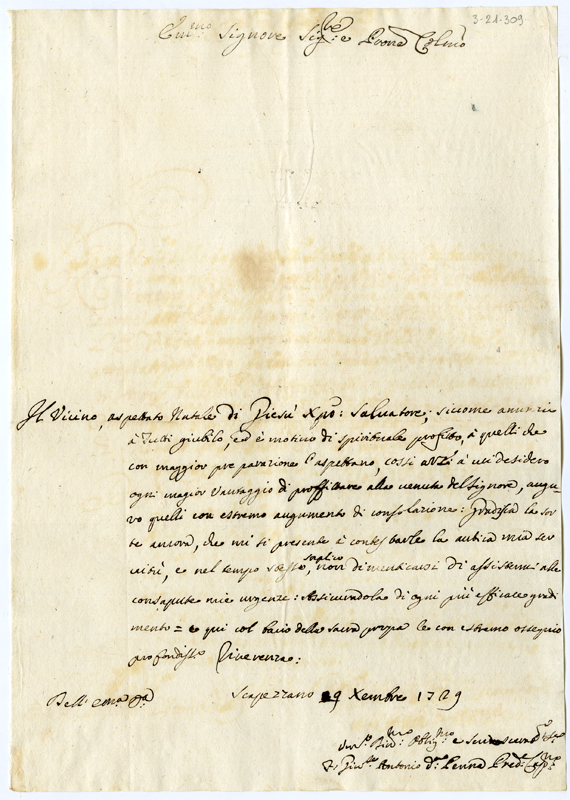 3-21-309
Em:mo Signore Sig:re e Prone Colmo
Il Vicino, aspettato Natale di Giesù Xpõ: Salvatore; siccome annunzia
à tutti giubilo, ed è motivo di spirituale profitto, à quelli che
con maggior preparazione l'aspettano, cossi anzi à cui desidero
ogni magior vantaggio di proffittare alla venuta del Signore, augu-
ro quelli con estremo augumento di consolazione: gradisca la sor
te ancora, che mi si presente à contestarle la antica mia ser
vitù, e nel tempo stesso supplico, non dimenticarsi di assistermi alle
consapute mie urgenze: Assicurandola di ogni più efficace gradi
mento = e qui col bacio della sacra porpora le con estremo ossequio
profondisso Riverenza:
Dell' Em:za Va
Scapezzano 9 Xembre 1729
Oblig:mo e
Antonio Penna Pred: Capp:no